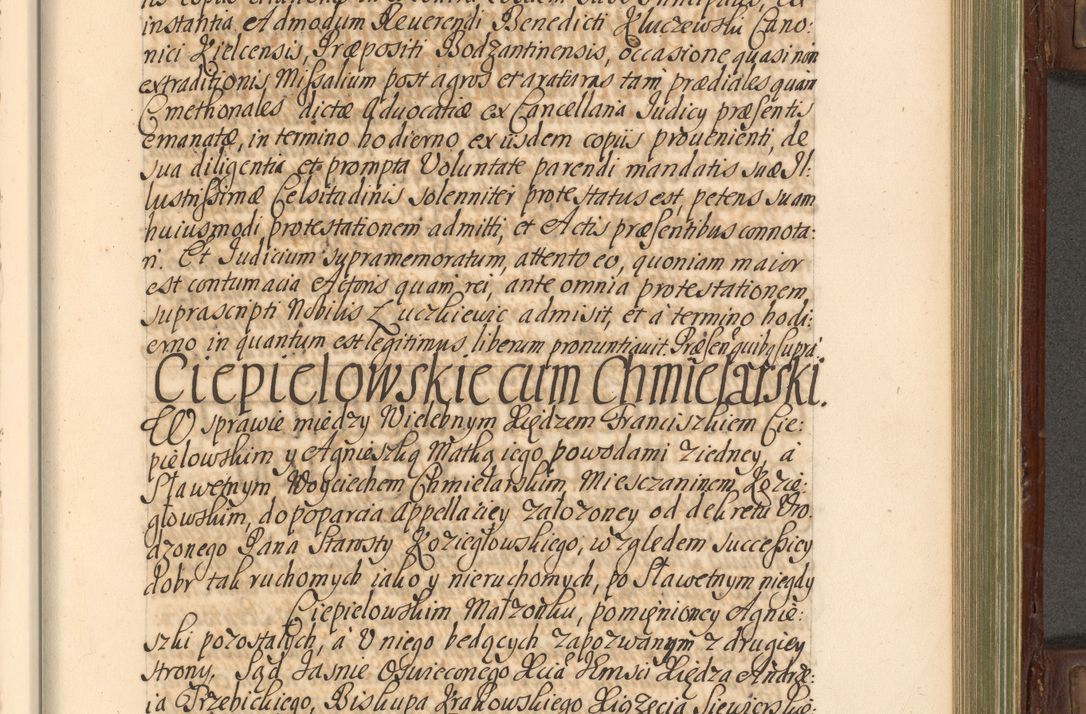 instantia et Admodum Reverendi Benedicti Kluczewski Cano:
nici Kielcensis, Præpositi Bodzantinensis, occasione quasi non
extraditionis Missalium post agros et araturas tam prædiales quam
Cmethonales dictæ Advocatiæ ex Cancellaria Judicy præsentis
emanatæ, in termino hodierno ex iisdem copiis provenienti, de
sua diligentia et prompta Voluntate parendi mandatis suæ Il:
lustrissimæ Celsitudinis solenniter protestatus est, petens suam
huiusmodi protestationem admitti, et Actis præsentibus connota:
ri. Et Judicium supramemoratum, attento eo, quoniam maior
est contumacia Actoris quam rei, ante omnia protestationem
suprascripti Nobilis Zuczkiewic admisit, et a termino hodi:
erno in quantum est legitimus liberum pronuntiavit. Præsen: quibq supra.
Ciepielowskie cum Chmielarski.
W sprawie między Wielebnym Xiędzem Franciszkiem Cie:
pielowskim y Agnieszką Matką iego powodami z iedney, a
Sławetnym Woyciechem Chmielarskim, Miesczaninem Kozie:
głowskim, do poparcia appellaciey założoney od dekretu Uro:
dzonego Pana Starosty Koziegłowskiego, względem successiey
dobr tak ruchomych iako y nieruchomych, po Sławetnym niegdy
Ciepielowskim Małżonku, pomienioney Agnie:
szki pozostałych, a U niego będących zapozwanym z drugiey
strony. Sąd Jasnie Oświeconego Xcia Jmsci Xiędza Andrze:
ia Trzebickiego, Biskupa Krakowskiego Xiążęcia Siewierskie: